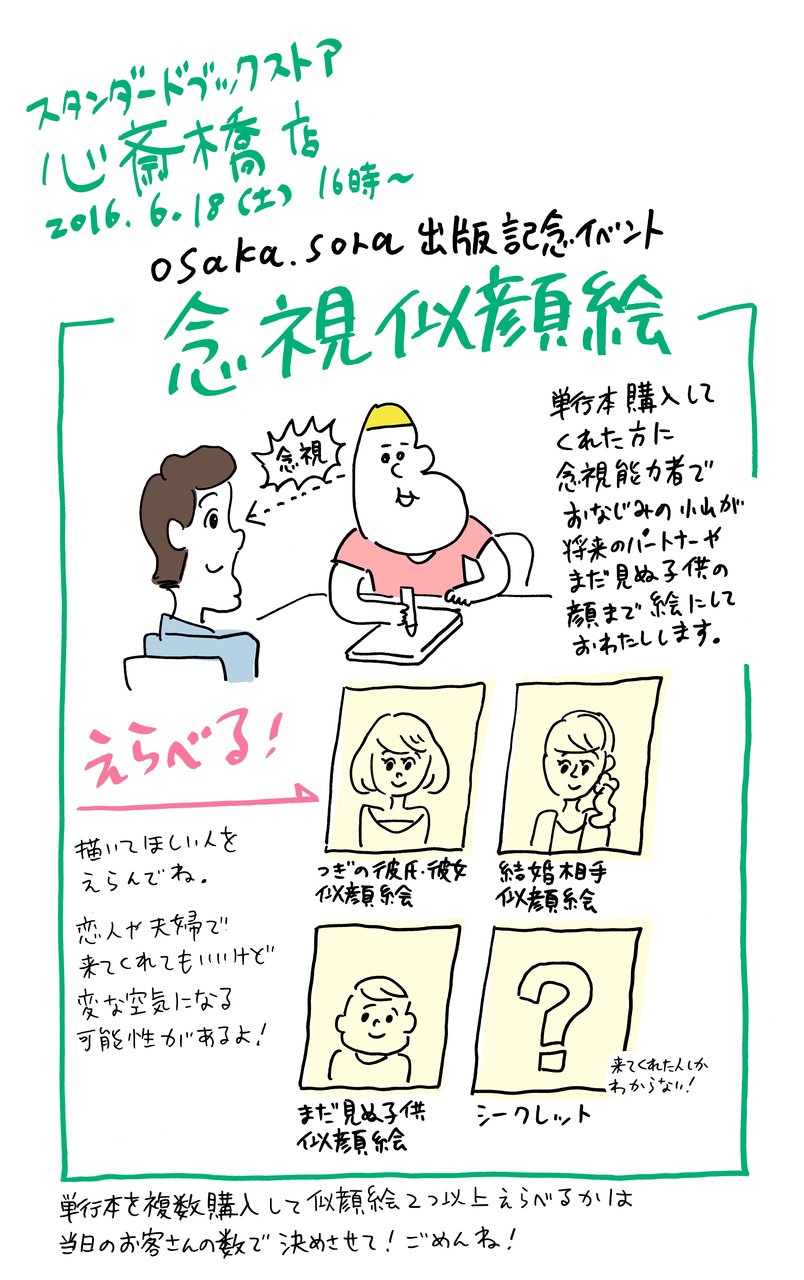 スタンダードブックストア
心斎橋店
2016.6.18(土) 16時〜
osaka.sora 出版記念イベント
念視似顔絵
念視
単行本購入して
くれた方に
念視能力者で
おなじみの小山が
将来のパートナーや
まだ見ぬ子供の
顔まで絵にして
おわたしします。
えらべる!
描いてほしい人を
えらんでね。
恋人や夫婦で
来てくれてもいいけど
変な空気になる
可能性があるよ!
つぎの彼氏・彼女
似顔絵
結婚相手
似顔絵
まだ見ぬ子供
似顔絵
?
来てくれた人しか
わからない!
シークレット
単行本を複数購入して似顔絵2つ以上えらべるかは
当日のお客さんの数で決めさせて!ごめんね!